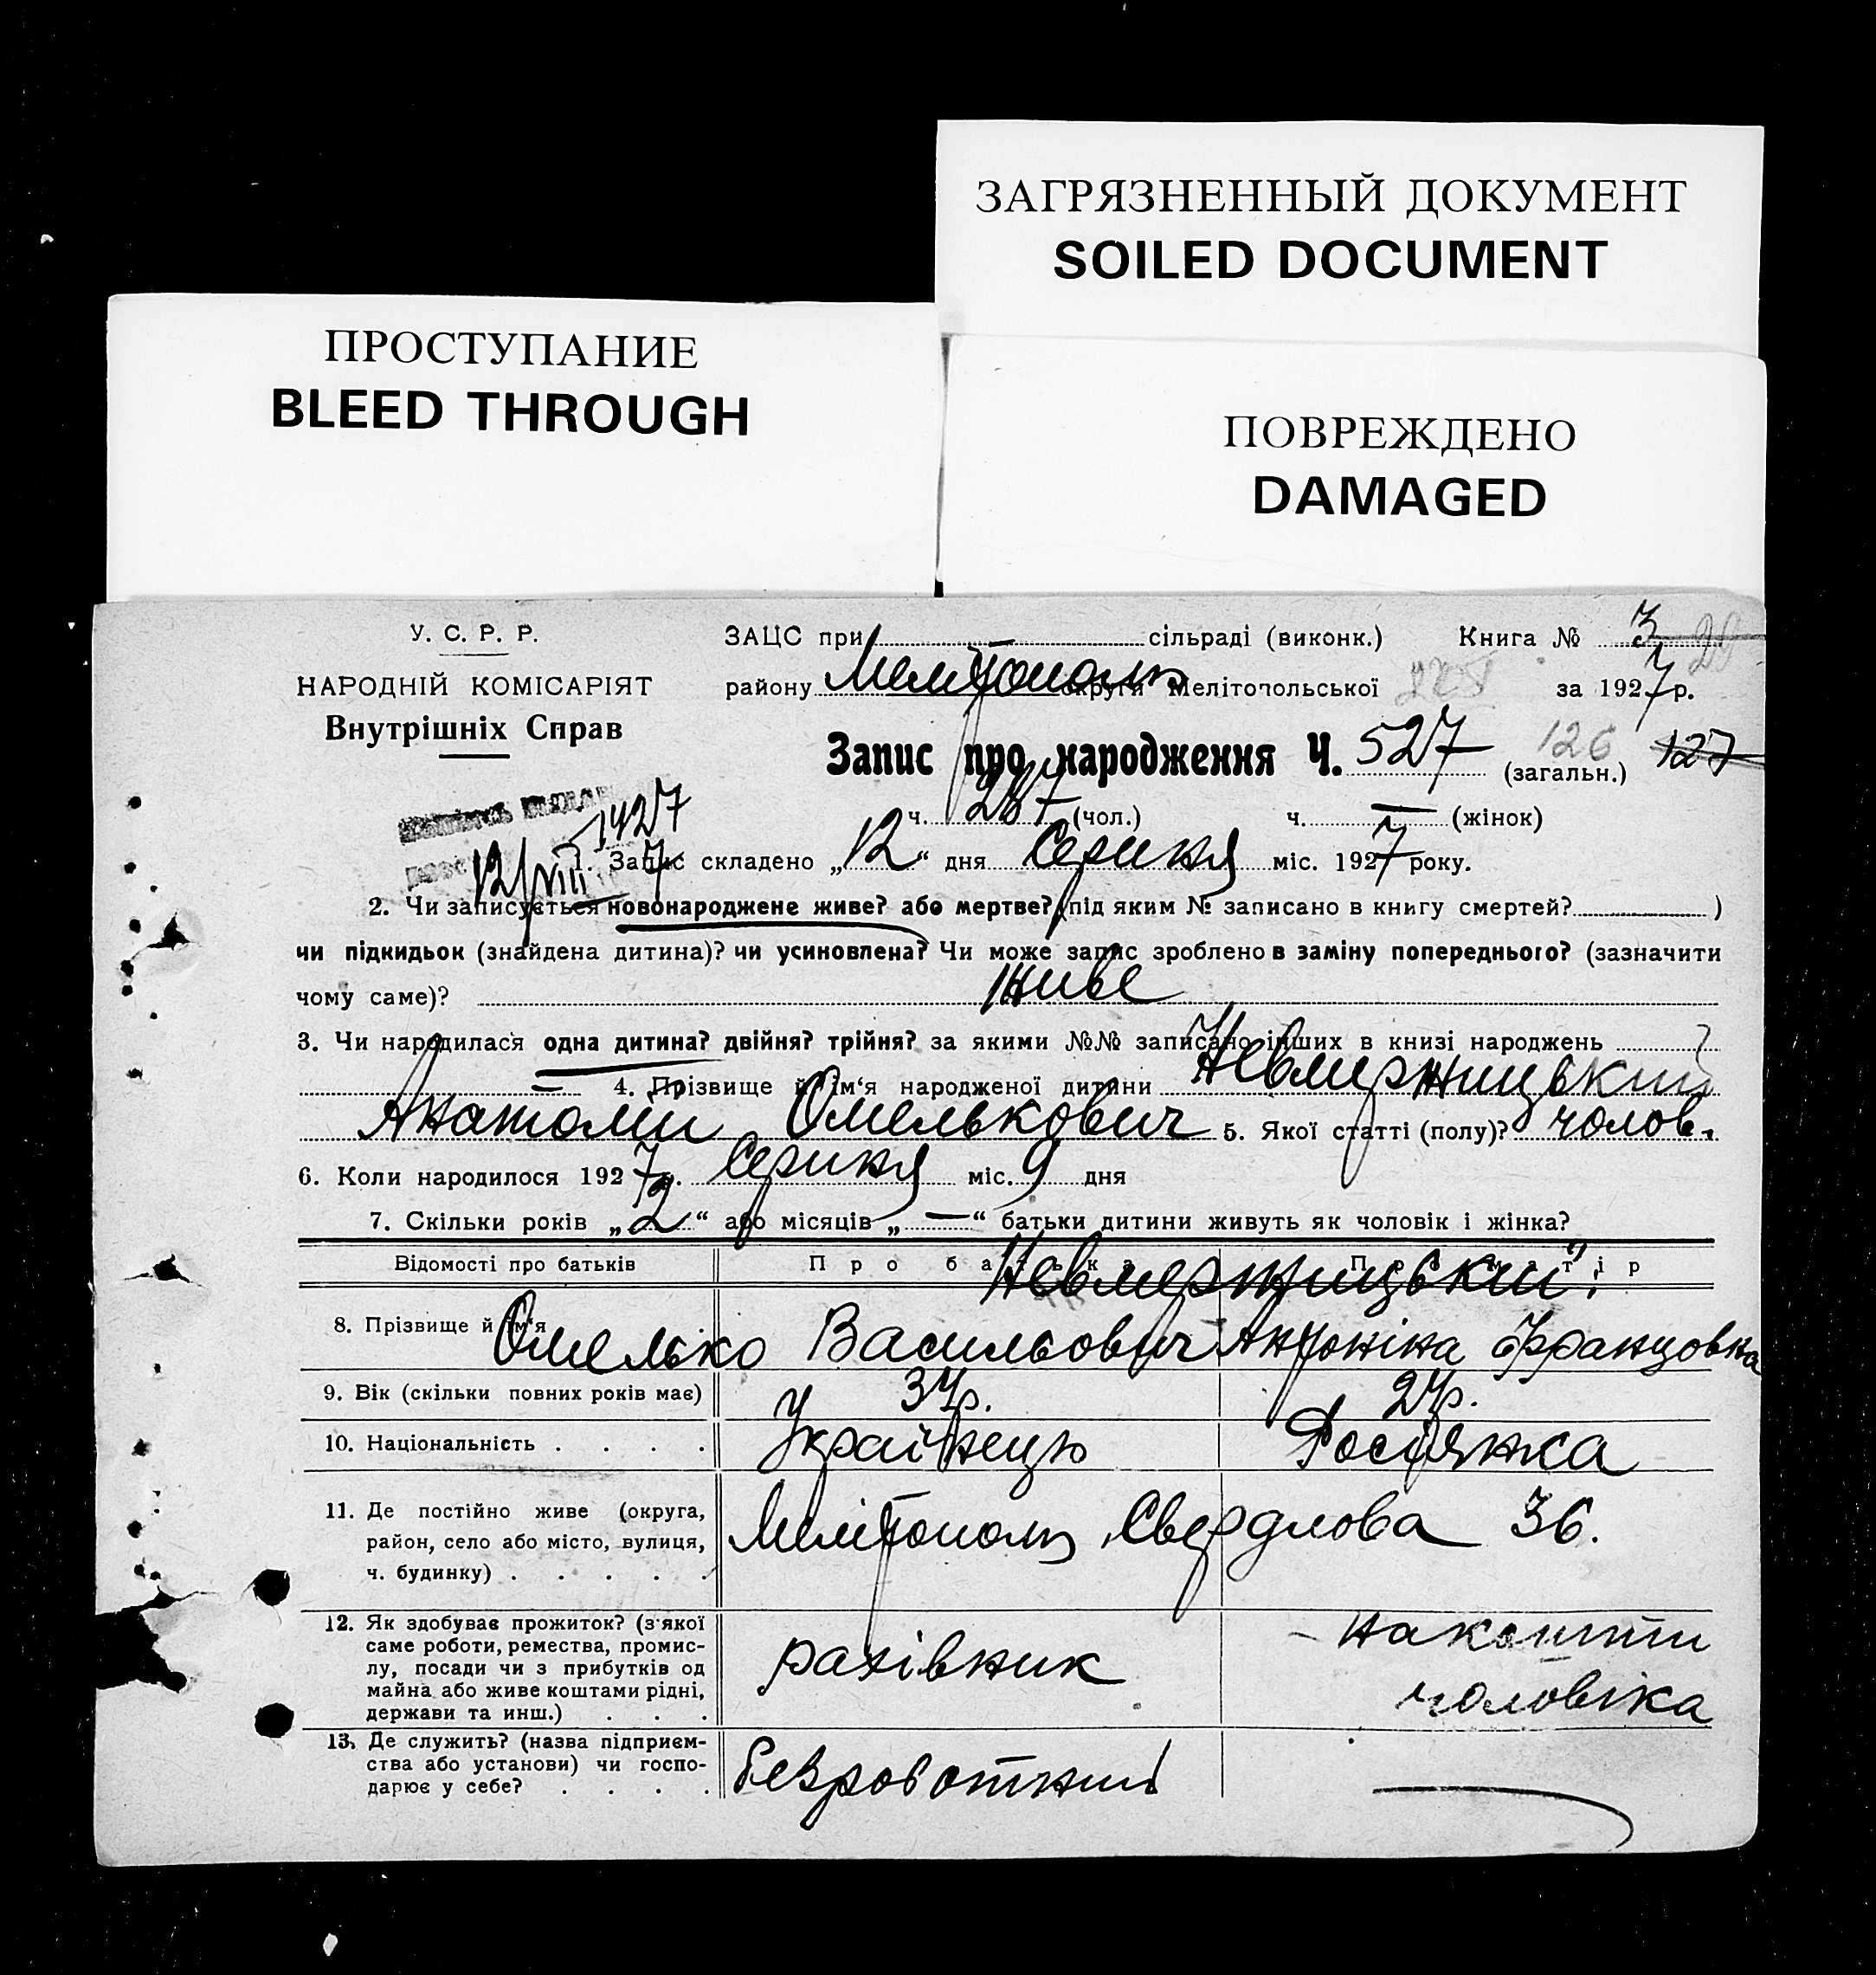 ЗАГРЯЗНЕННЫЙ ДОКУМЕНТ
SOILED DOCUMENT
ПРОСТУПАНИЕ
BLEED THROUGH
ПОВРЕЖДЕНО
DAMAGED
У. С. Р. Р.
НАРОДНІЙ КОМІСАРІЯТ
Внутрішніх Справ
ЗАЦС при — сільраді (виконк.) Книга № 3
району Мелітополь округи Мелітопольської за 1927 р.
Запис про народження Ч. 527 (загальн.) 126 127
ч. 287 (чол.) ч. — (жінок)
12/VIII 1927
1. Запис складено „12“ дня Серпня міс. 1927 року.
2. Чи записується новонароджене живе? або мертве? (під яким № записано в книгу смертей? )
чи підкидьок (знайдена дитина)? чи усиновлена? Чи може запис зроблено в заміну попереднього? (зазначити
чому саме)? живе
3. Чи народилася одна дитина? двійня? трійня? за якими №№ записано інших в книзі народжень
— 4. Прізвище й ім‘я народженої дитини Невмержицький
Анатолій Омелькович 5. Якої статті (полу)? чолов.
6. Коли народилося 1927 р. Серпня міс. 9 дня
7. Скільки років „2“ або місяців „—“ батьки дитини живуть як чоловік і жінка?
Відомості про батьків Про батька Про матір
Невмержицькі:
8. Прізвище й ім‘я Омелько Васильович Антоніна Францовна
9. Вік (скільки повних років має) 37р. 27р.
10. Національність . . . . Українець Росіянка
11. Де постійно живе (округа,
район, село або місто, вулиця,
ч. будинку) . . . . .
Мелітополь Свердлова 36.
12. Як здобуває прожиток? (з якої
саме роботи, ремества, промис-
лу, посади чи з прибутків од
майна або живе коштами рідні,
держави та инш.) . . .
рахівник
на кошти
чоловіка
13. Де служить? (назва підприєм-
ства або установи) чи госпо-
дарює у себе? . . . .
безроботний —